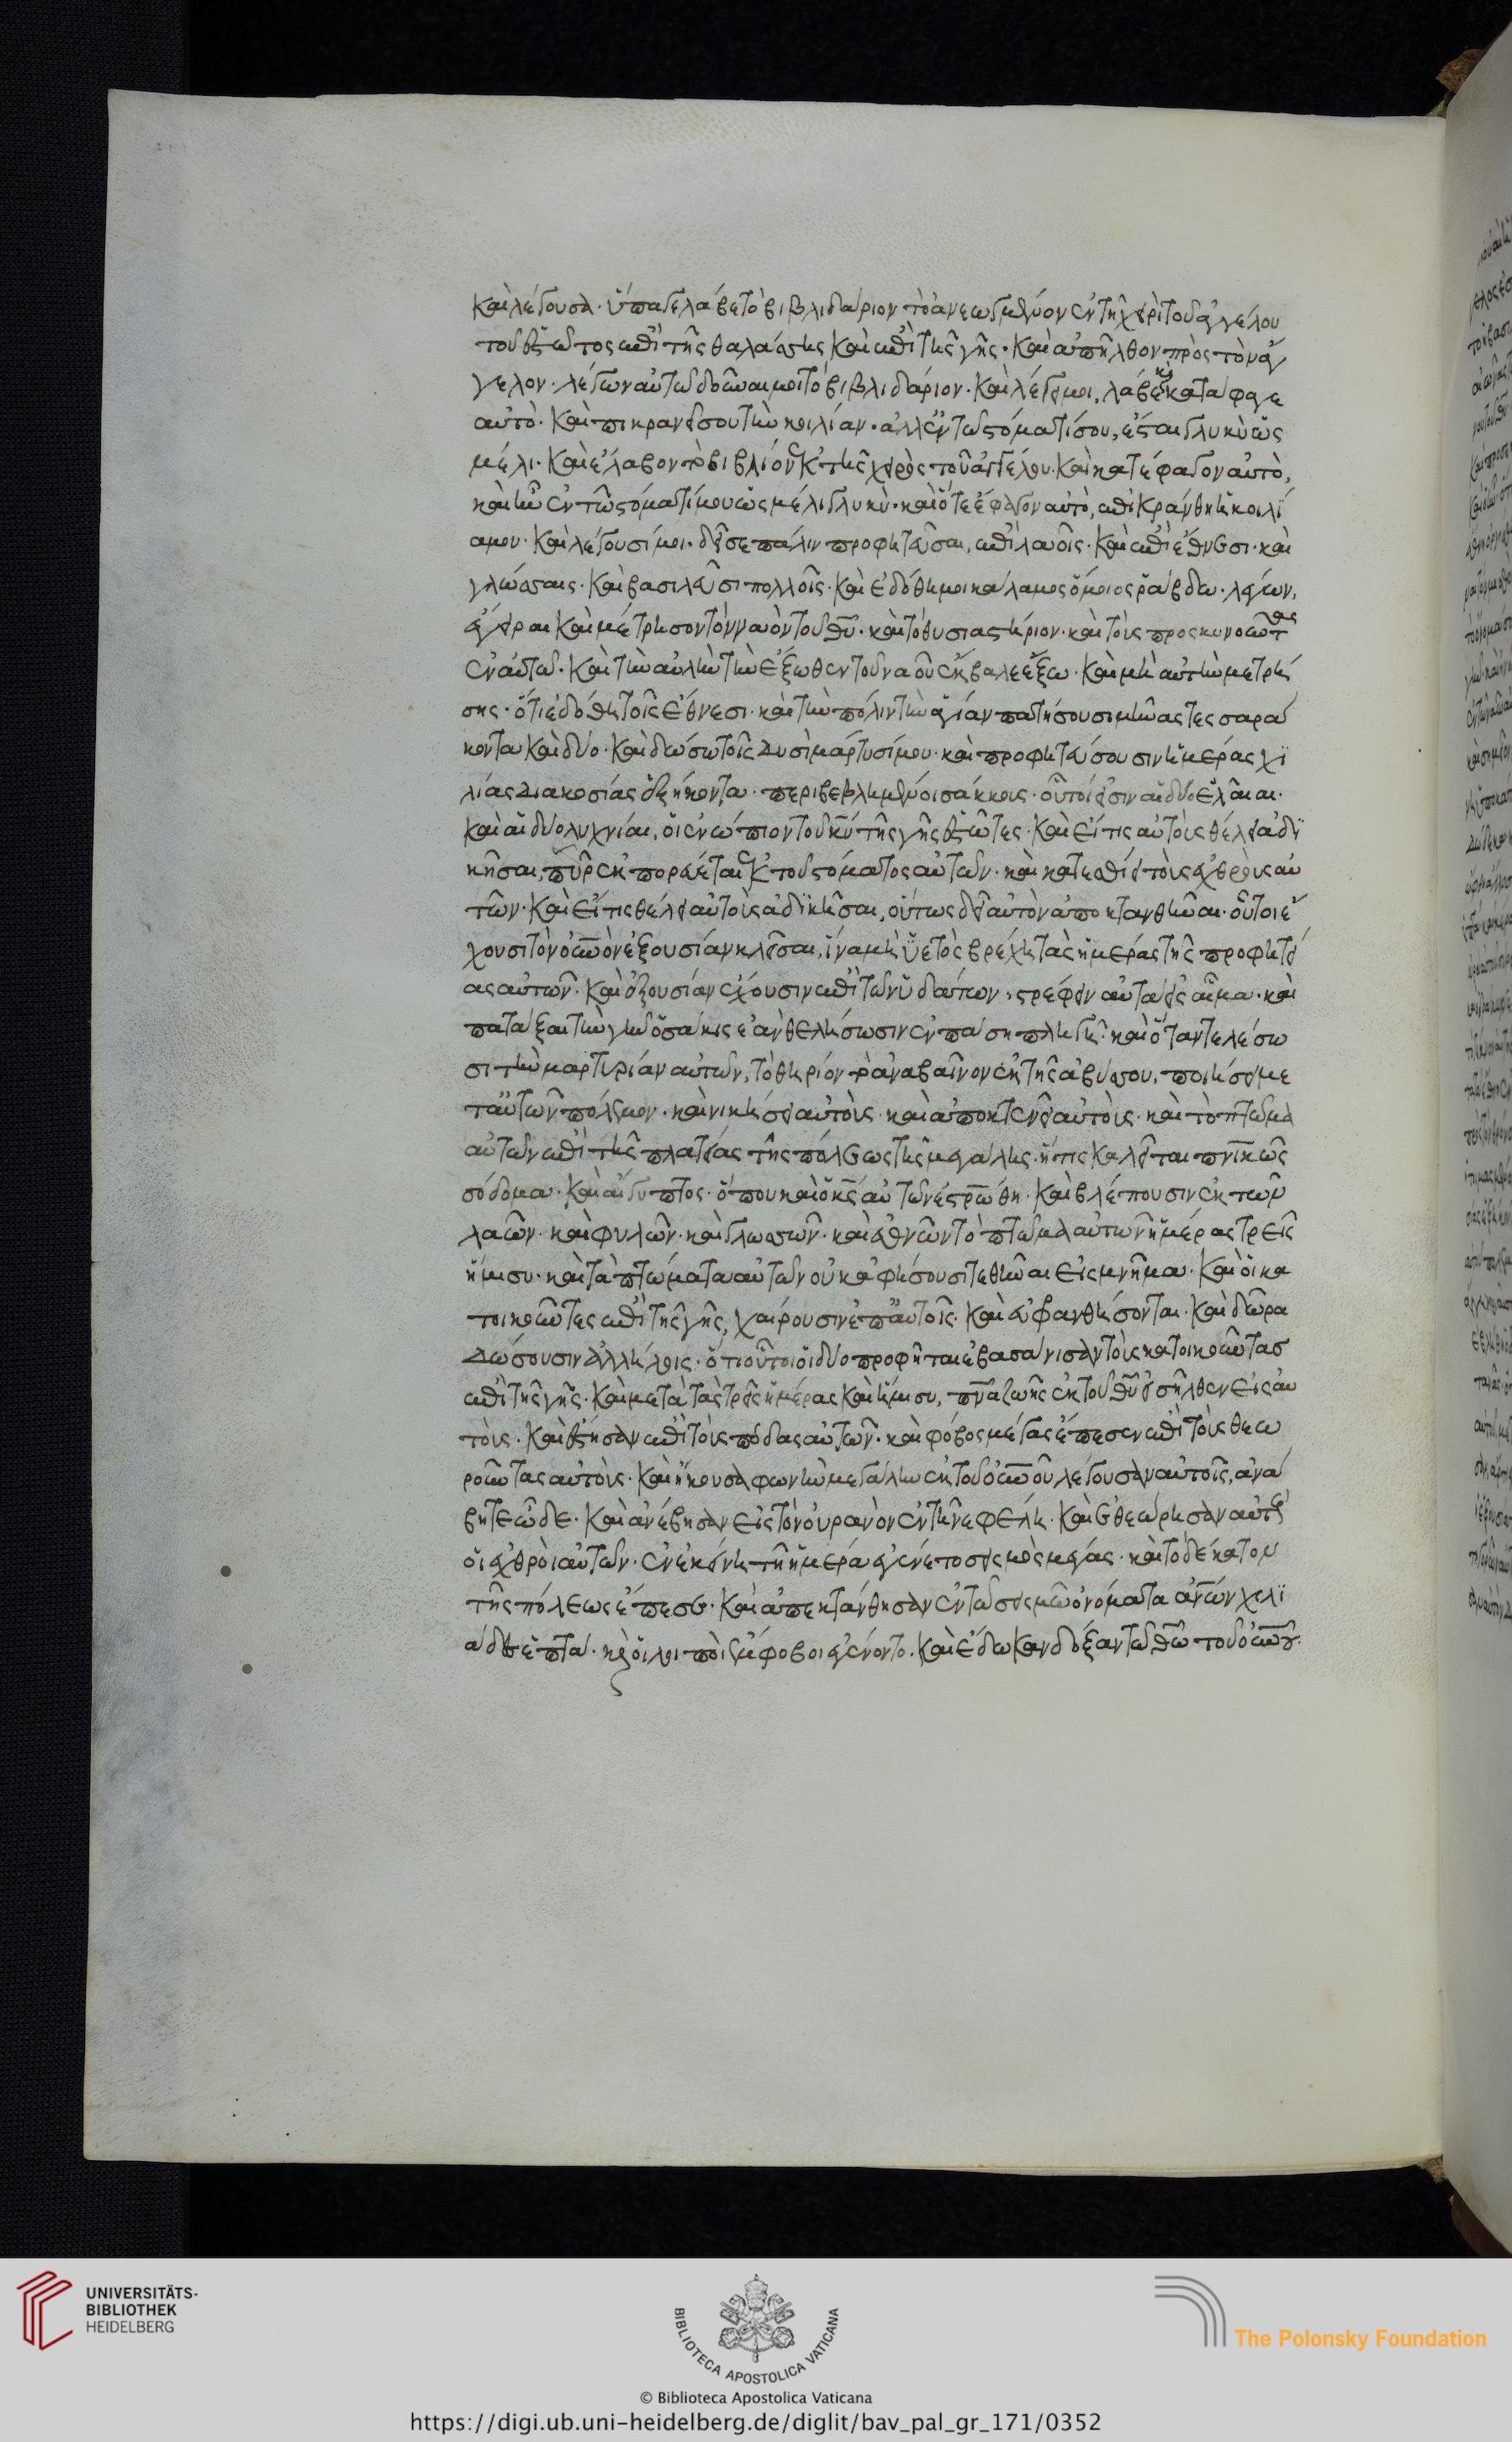 καὶ λέγουσα· ὕπαγε λάβε τὸ βιβλιδάριον τὸ ἀνεωγμένον ἐν τῇ χειρὶ τοῦ ἀγγέλου
τοῦ ἑστῶτος ἐπὶ τῆς θαλάσσης καὶ ἐπὶ τῆς γῆς· καὶ ἀπῆλθον πρὸς τὸν ἄγ
γελον· λέγων αὐτῶ δοῦναι μοι τὸ βιβλιδάριον· καὶ λέγει μοι, λάβε καὶ κατάφαγε
αὐτό· καὶ πικρανεῖ σου τὴν κοιλίαν· ἀλλ' ἐν τῶ στόματί σου, ἔσται γλυκὺ ὡς
μέλι· καὶ ἔλαβον τὸ βιβλίον ἐκ τῆς χειρὸς τοῦ ἀγγέλου· καὶ κατέφαγον αὐτὸ,
καὶ ἦν ἐν τῶ στόματί μου ὡς μέλι γλυκὺ· καὶ ὅτε ἔφαγον αὐτὸ, ἐπικράνθη ἡ κοιλί
α μου· καὶ λέγουσί μοι· δεῖ σε πάλιν προφητεῦσαι, ἐπὶ λαοῖς· καὶ ἐπὶ ἔθνεσι· καὶ
γλώσσαις· καὶ βασιλεῦσι πολλοῖς· καὶ ἐδόθη μοι κάλαμος ὅμοιος ῥάβδω· λέγων,
ἔγειραι καὶ μέτρησον τὸν ναὸν τοῦ θῦ· καὶ τὸ θυσιαστήριον· καὶ τοὺς προσκυνοῦντας
ἐν αὐτῶ· καὶ τὴν αὐλὴν τὴν ἔξωθεν τοῦ ναοῦ ἔκβαλε ἔξω· καὶ μὴ αὐτὴν μετρή
σης· ὅτι ἐδόθη τοῖς ἔθνεσι· καὶ τὴν πόλιν τὴν ἁγίαν πατήσουσι μῆνας τεσσαρά
κοντα καὶ δύο· καὶ δώσω τοῖς δυσὶ μάρτυσί μου· καὶ προφητεύσουσιν ἡμέρας χι
λίας διακοσίας ἑξήκοντα· περιβεβλημένοι σάκκους· οὗτοί εἰσιν αἱ δύο ἐλαῖαι·
καὶ αἱ δύο λυχνίαι, οἱ ἐνώπιον τοῦ κῦ τῆς γῆς ἑστῶτες· καὶ εἴ τις αὐτοὺς θέλει ἀδι
κῆσαι, πῦρ ἐκπορεύεται ἐκ τοῦ στόματος αὐτῶν· καὶ κατεσθίει τοὺς ἐχθροὺς αὐ
τῶν· καὶ εἴ τις θέλει αὐτοὺς ἀδικῆσαι, οὕτως δεῖ αὐτὸν ἀποκτανθῆναι· οὗτοι ἔ
χουσι τὸν οὐνὸν ἐξουσίαν κλεῖσαι, ἵνα μὴ ὑετὸς βρέχη τὰς ἡμέρας τῆς προφητεί
ας αὐτῶν· καὶ ἐξουσίαν ἔχουσιν ἐπὶ τῶν ὑδάτων, στρέφειν αὐτὰ εἰς αἷμα· καὶ
πατάξαι τὴν γῆν ὁσάκις ἐὰν θελήσωσιν ἐν πάση πληγῆ· καὶ ὅταν τελέσω
σι τὴν μαρτυρίαν αὐτῶν, τὸ θηρίον τὸ ἀναβαῖνον ἐκ τῆς ἀβύσσου, ποιήσει με
τ' αὐτῶν πόλεμον· καὶ νικήσει αὐτοὺς· καὶ ἀποκτενεῖ αὐτοὺς· καὶ τὸ πτῶμα
αὐτῶν ἐπὶ τῆς πλατείας τῆς πόλεως τῆς μεγάλης· ἥτις καλεῖται πνικῶς
σόδομα· καὶ αἴγυπτος· ὅπου καὶ ὁ κς αὐτῶν ἐστρώθη· καὶ βλέπουσιν ἐκ τῶν
λαῶν· καὶ φυλῶν· καὶ γλωσσῶν· καὶ ἐθνῶν τὸ πτῶμα αὐτῶν ἡμέρας τρεῖς
ἥμισυ· καὶ τὰ πτώματα αὐτῶν οὐκ ἀφήσουσι τεθῆναι εἰς μνῆμα· καὶ οἱ κα
τοικοῦντες ἐπὶ τῆς γῆς, χαίρουσιν ἐπ' αὐτοῖς· καὶ εὐφρανθήσονται· καὶ δῶρα
δώσουσιν ἀλλήλοις· ὅτι οὗτοι οἱ δύο προφῆται ἐβασάνισαν τοὺς κατοικοῦντας
ἐπὶ τῆς γῆς· καὶ μετὰ τὰς τρεῖς ἡμέρας καὶ ἥμισυ, πνα ζωῆς ἐκ τοῦ θῦ εἰσῆλθεν εἰς αὐ
τοὺς· καὶ ἔστησαν ἐπὶ τοὺς πόδας αὐτῶν· καὶ φόβος μέγας ἔπεσεν ἐπὶ τοὺς θεω
ροῦντας αὐτοὺς· καὶ ἤκουσα φωνὴν μεγάλην ἐκ τοῦ οὐνοῦ λέγουσαν αὐτοῖς, ἀνά
βητε ὧδε· καὶ ἀνέβησαν εἰς τὸν οὐρανὸν ἐν τῆ νεφέλη· καὶ ἐθεώρησαν αὐτοὺς
οἱ ἐχθροὶ αὐτῶν· ἐν ἐκείνη τῆ ἡμέρα ἐγένετο σεισμὸς μέγας· καὶ τὸ δέκατον
τῆς πόλεως ἔπεσε· καὶ ἀπεκτάνθησαν ἐν τῶ σεισμῶ ὀνόματα ἀνων χιλι
άδες ἑπτά· καὶ οἱ λοιποὶ ἔμφοβοι ἐγένοντο· καὶ ἔδωκαν δόξαν τῶ θῶ τοῦ οὐνοῦ·
UNIVERSITÄTS-
BIBLIOTHEK
HEIDELBERG
BIBLIOTECA APOSTOLICA VATICANA
The Polonsky Foundation
© Biblioteca Apostolica Vaticana
https://digi.ub.uni-heidelberg.de/diglit/bav_pal_gr_171/0352